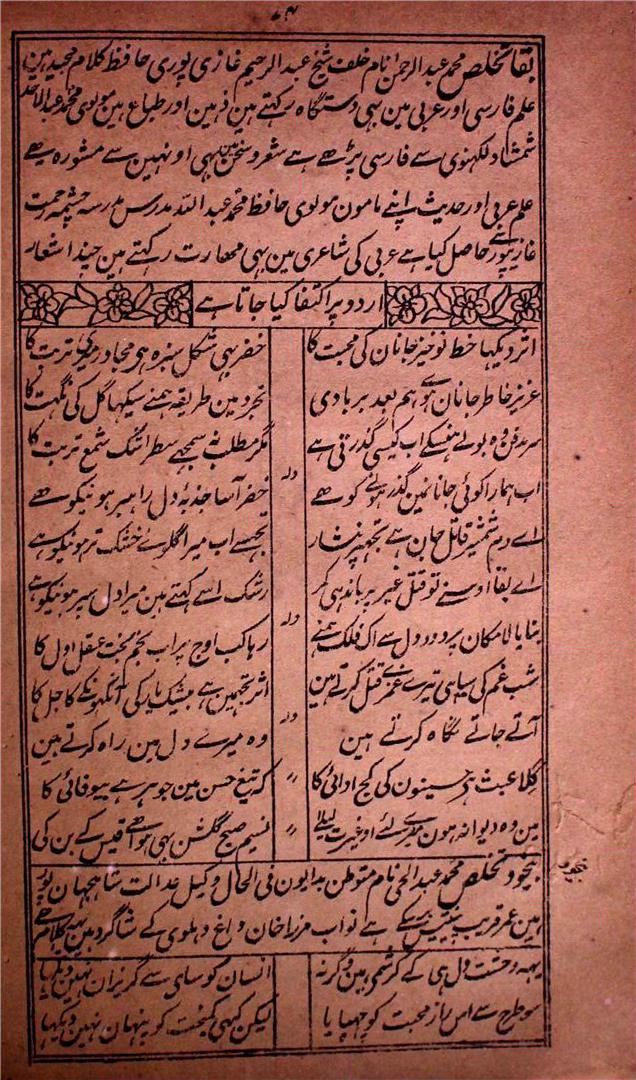 ۷۴
بقا تخلص محمد عبد الرحمن نام خلف شیخ عبد الرحیم غازی پوری حافظ کلام مجید ہین
علم فارسی اور عربی مین بہی دستگاہ رکہتے ہین ذہین اور طباع ہین مولوی محمد عبد الاحد
شمشاد لکہنوی سے فارسی پڑھے ہے شعر و سخن مین بہی اونہین سے مشورہ ہے
علم عربی اور حدیث اپنے مامون مولوی حافظ محمد عبد اللہ مدرس مدرسہ چشمہ رحمت
غازیپور سے حاصل کیا ہے عربی کی شاعری مین بہی مہارت رکہتے ہین چند اشعار
اردو پر اکتفا کیا جاتا ہے
اثر دیکہا خط نوخیز جانان کی محبت کا
خضر بہی شکل سبزہ ہی مجاور میری تربت کا
عزیز خاطر جانان ہوے ہم بعد بربادی
تجرد مین طریقہ ہمنے سیکہا گل کی نکہت کا
سر مدفن وہ بولے ہنسکے اب کیسی گذرتی ہے
مگر مطلب نہ سمجہے سطر اشک شمع تربت کا
ولہ
اب ہمارا کوئی جانا نمین گذر ہونیکو ہے
خضر آسا جذبۂ دل راہبر ہونیکو ہے
اے دم شمشیر قاتل جان ہے تجہپر نثار
تجہسے اب میرا گلوے خشک تر ہونیکو ہے
اے بقا اوسنے تو قتل غیر پر باندہی کمر
رشک اسے کہتے ہین میرا دل سپر ہونیکو ہے
ولہ
بنایا لامکان پر دود دل سے اک فلک ہمنے
رہا کب اوج پر اب نجم بخت عقل اول کا
شب غم کی سیاہی تیرے غمزے قتل کرتے ہین
اثر تجہمین ہے بیشک یار کی آنکہونکے کاجل کا
ولہ
آتے جاتے نگاہ کرتے ہین
وہ میرے دل مین راہ کرتے ہین
گلا عبث ہے حسینون کی کج ادائی کا
〃
کہ تیغ حسن مین جوہر ہے بیوفائی کا
مین وہ دیوانہ ہون میرے لئے او غیرت لیلے
〃
نسیم صبح گلشن بہی ہوا ہے قیس کے بن کی
بیخود
بیخود تخلص محمد عبد الحی نام متوطن بدایون فی الحال وکیل عدالت شاہجہان پور
ہین عمر قریب پینتیس کے ہے نواب مرزا خان داغ دہلوی کے شاگرد ہین یہہ کلام ہے
یہہ وحشت دل ہی کے کرشمی ہین وگرنہ
انسان کو سای سے گریزان نہین دیکہا
سو طرح سے اس راز محبت کو چہپایا
لیکن کبہی کمبخت کو پنہان نہین دیکہا